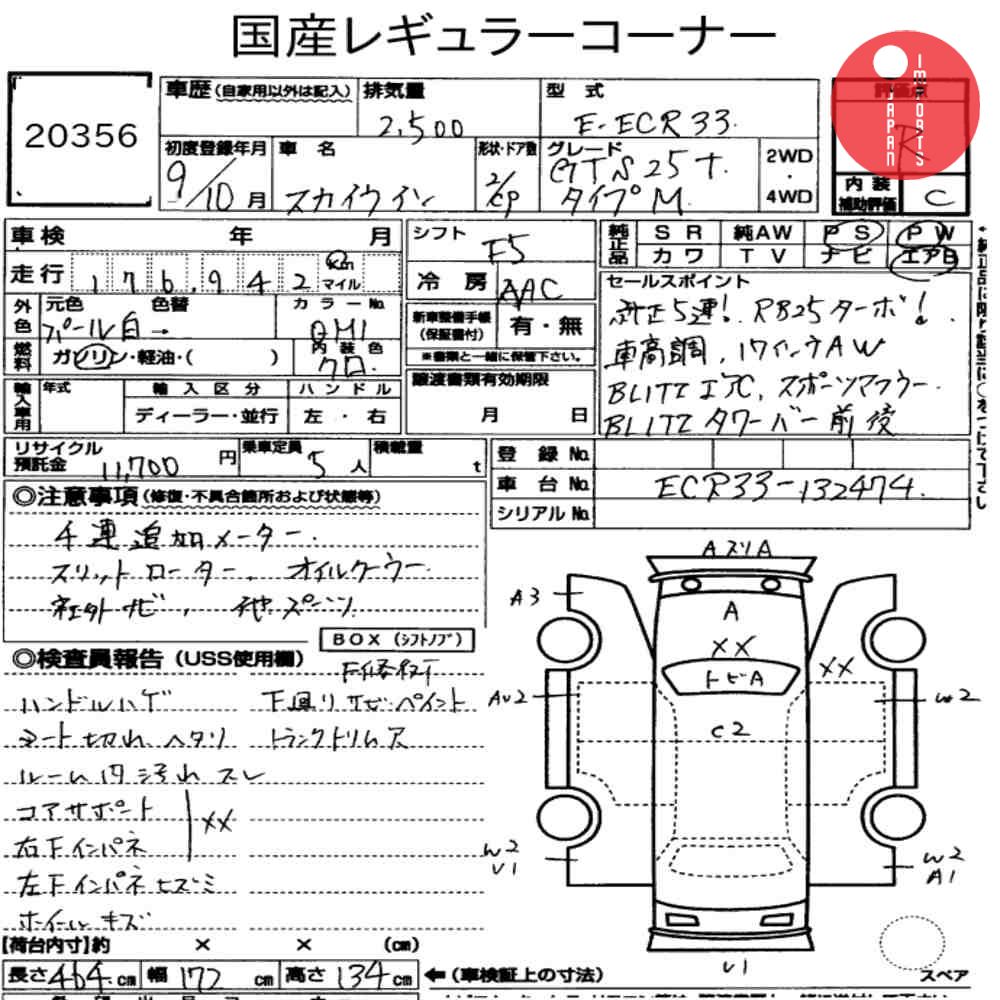 国産レギュラーコーナー
JAPAN IMPORTS
20356
車歴 (自家用以外は記入) 排気量 型式 評価点
2,500 E-ECR33 R
初度登録年月 車名 形状・ドア数 グレード 2WD・4WD
9/10月 スカイライン 2/cp GTS25T タイプM
内装補助評価 C
車検 年 月
シフト F5
純正品 SR 純AW PS PW
カワ TV ナビ エアB
走行 176,942 Km マイル
冷房 AAC
外色 元色 色替 カラーNo.
パール白 → QM1
燃料 ガソリン・軽油・( ) 内装色 クロ
新車整備手帳(保証書付) 有・無
※書類と一緒に保管下さい。
セールスポイント
純正5速! RB25ターボ!
車高調、17インチAW
BLITZ I/C、スポーツマフラー
BLITZ タワーバー前後
輸入車用 年式 輸入区分 ハンドル
ディーラー・並行 左・右
譲渡書類有効期限
月 日
リサイクル預託金 11,700円 乗車定員 5人 積載量 t
登録No.
車台No. ECR33-132474
シリアルNo.
◎注意事項 (修復・不具合箇所および状態等)
4連追加メーター
スリットローター、オイルクーラー
社外ナビ、他スポーツ
BOX (シフトノブ)
◎検査員報告 (USS使用欄)
F修復
ハンドルハゲ 下廻りサビ・ペイント
シート切れ、ヘタリ トランクトリムス
ルーム内汚れ スレ
コアサポート
XX
右Fインパネ
左Fインパネヒズミ
ホイールキズ
AスリA
A3
A
XX
XX
トビA
AU2
W2
C2
W2
U1
W2
A1
U1
【荷台内寸】約 × × (cm)
長さ464cm 幅172cm 高さ134cm ←(車検証上の寸法)
スペア